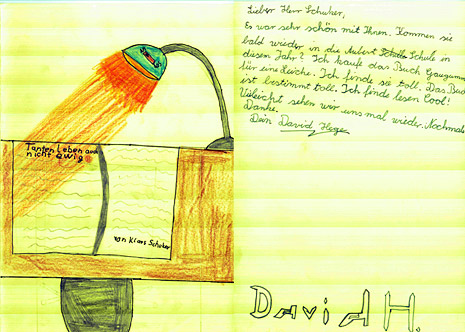 Tanten Leben auch
nicht ewig
von Klaus Schuker
Lieber Herr Schuker,
Es war sehr schön mit Ihnen. Kommen sie
bald wieder in die Aubert Schule in
diesen Jahr? Ich kaufe das Buch
für eine Leiche. Ich finde sie toll. Das Buc
ist bestimmt toll. Ich finde lesen Cool!
Vieleicht sehen wir uns mal wieder. Nochmal
Danke.
Dein David
David H.